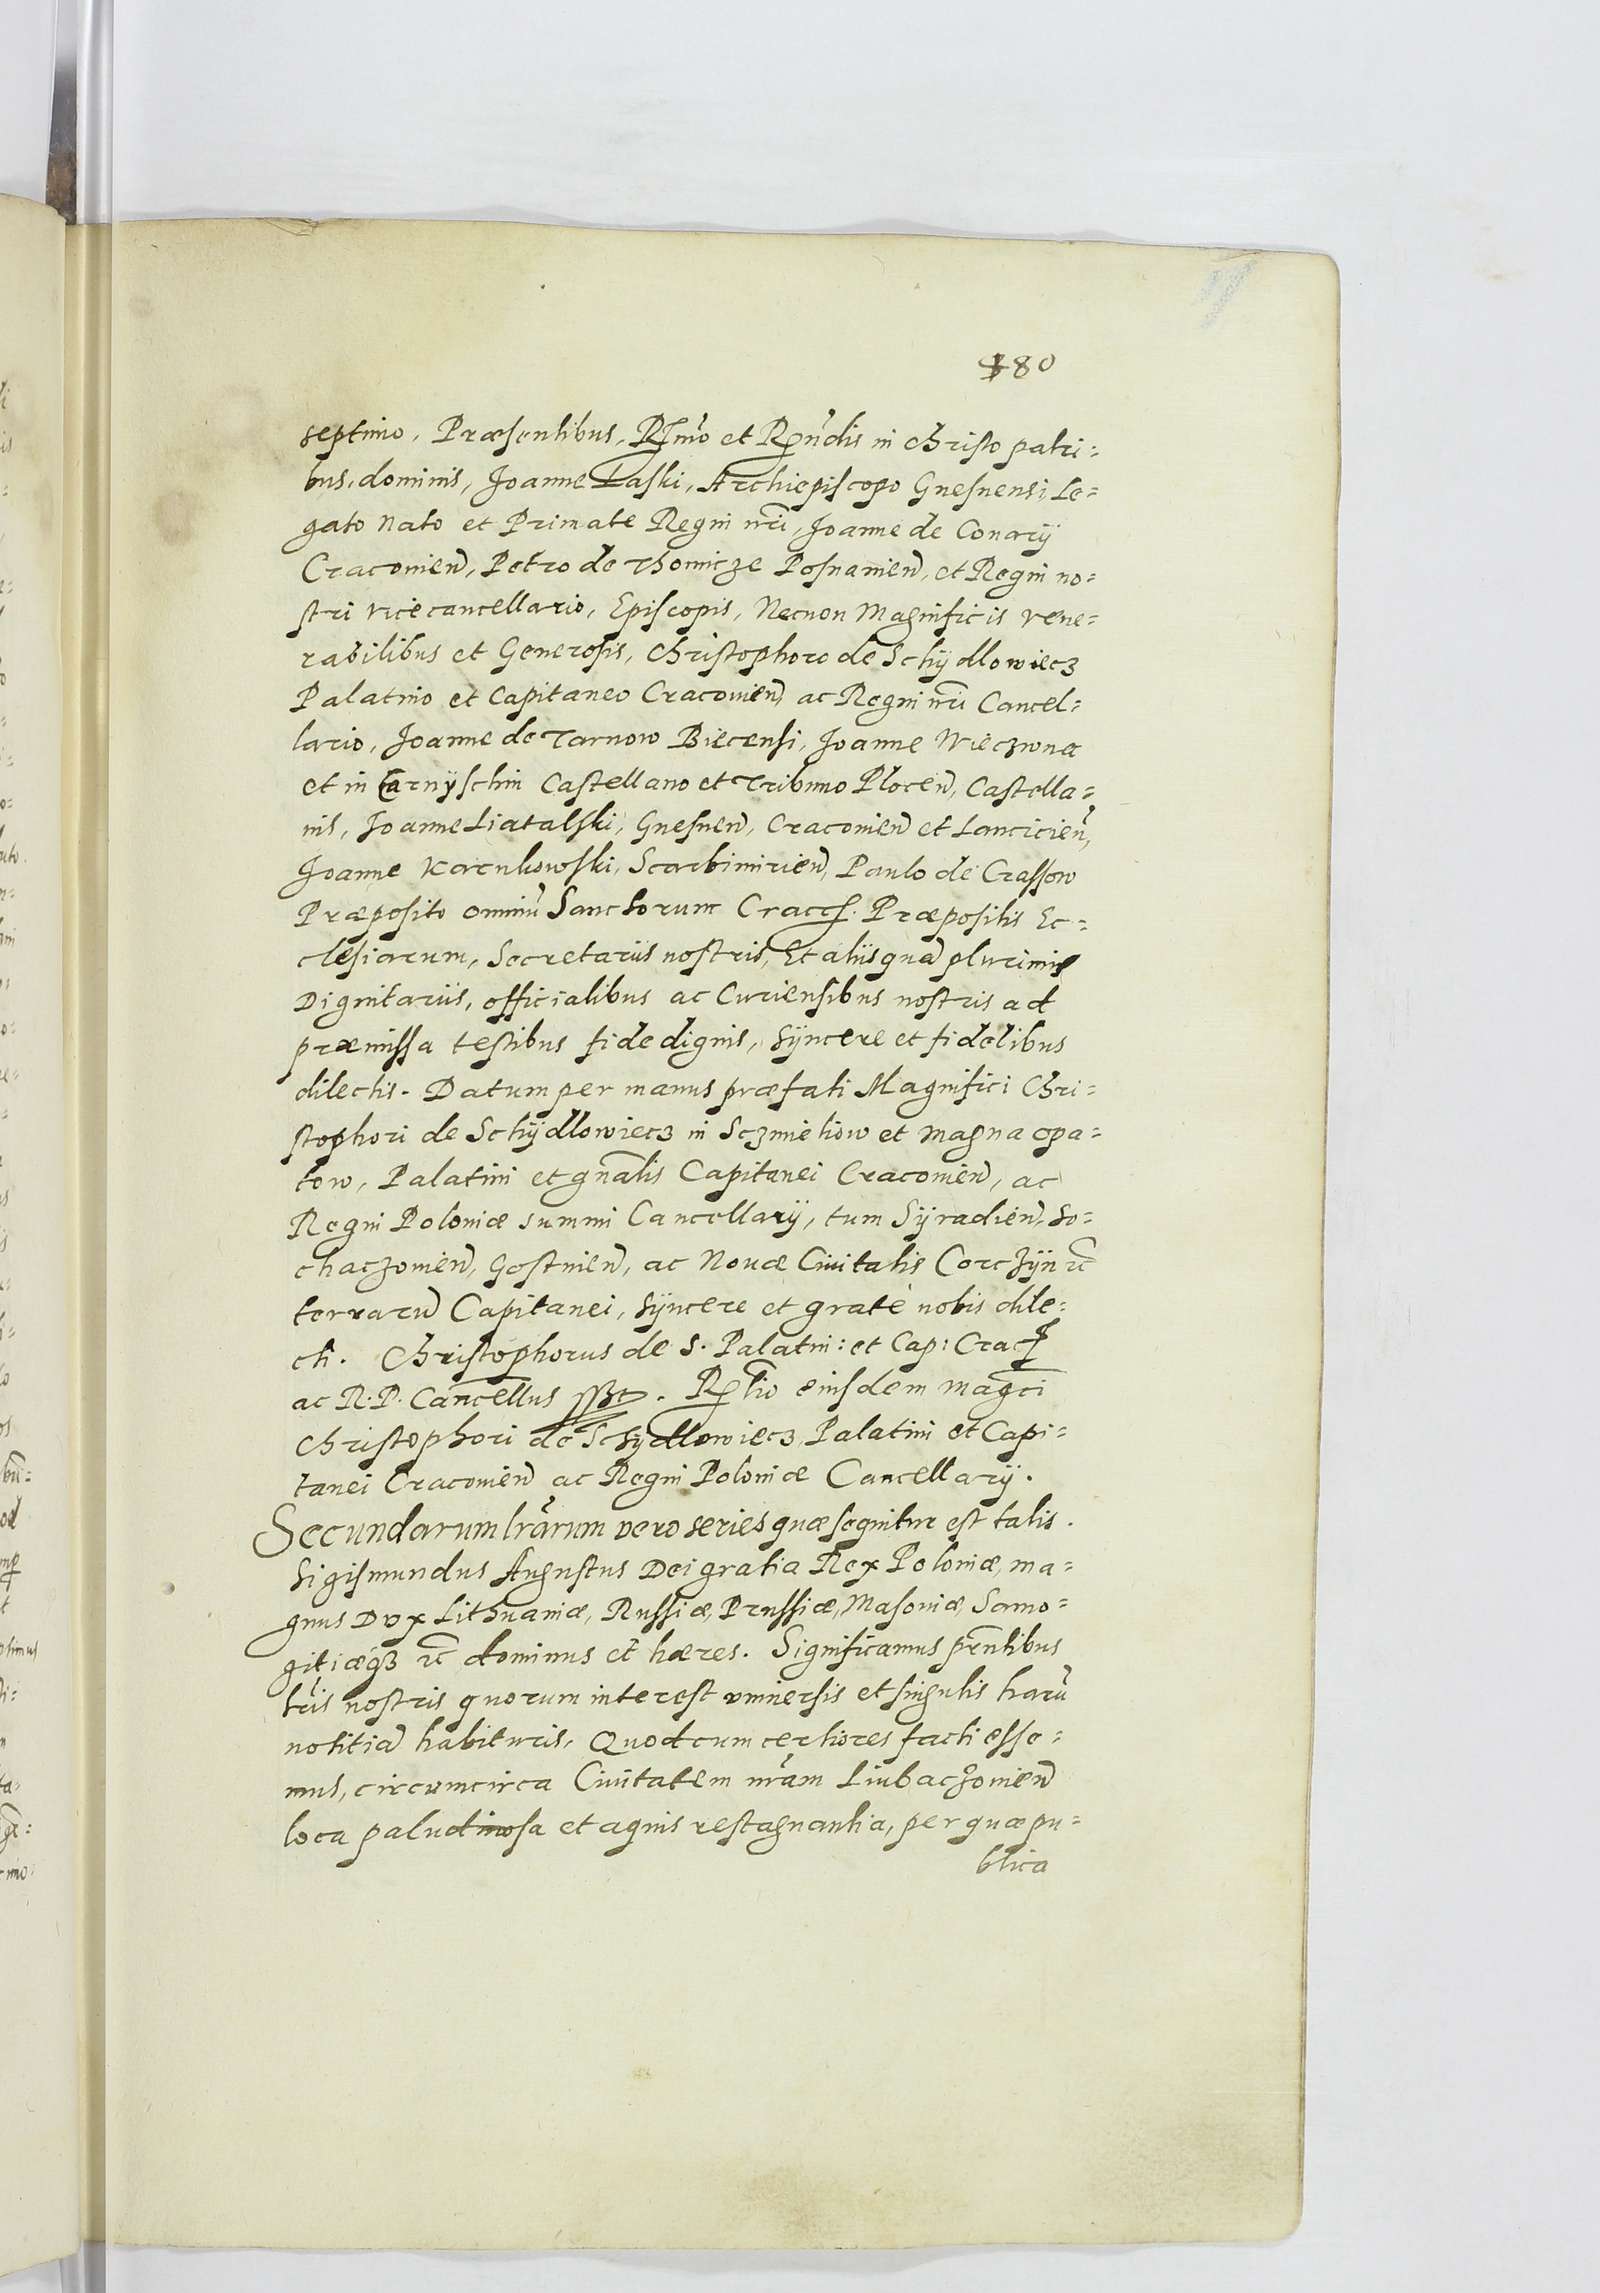 180
septimo, Præsentibus, R̃mo et Rñdis in Christo patri=
bus, dominis, Joanne Laski, Archiepiscopo Gnesnensi, Le=
gato Nato et Primate Regni nr̃i, Joanne de Conary
Cracovien̄, Petro de Thomicze Posnanien̄, et Regni no=
stri vicecancellario, Episcopis, Necnon Magnificis vene=
rabilibus et Generosis, Christophoro de Schÿdlowiecz
Palatino et Capitaneo Cracovien̄, ac Regni nr̃i Cancel=
lario, Joanne de Tarnow Biecensi, Joanne Wieczwnæ
et in Carnÿschin Castellano et Tribuno Plocen̄, Castella=
nis, Joanne Liatalski, Gnesnen̄, Cracovien̄ et Lancicien̄,
Joanne Karnkowski, Scarbimirien̄, Paulo de Crassow
Præposito omniũ Sanctorum Crac. Præpositis Ec=
clesiarum, Secretariis nostris, Et aliis quã plurimis
Dignitariis, officialibus ac Curiensibus nostris ad
præmissa testibus fide dignis, sÿncere et fidelibus
dilectis. Datum per manus præfati Magnifici Chri=
stophori de Schÿdlowiecz in Sczmieliow et magna opa=
tow, Palatini et gñalis Capitanei Cracovien̄, ac
Regni Poloniæ summi Cancellarÿ, tum Sÿradien̄, So=
chaczovien̄, Gostinien̄, ac Novæ Civitatis Corczÿn rc̃
terrarũ Capitanei, sÿncere et grate nobis dile=
cti. Christophorus de S. Palatin: et Cap: Crac
ac R. P. Cancellus sst. Rlĩo eiusdem magci
Christophori de Schÿdlowiecz, Palatini et Capi=
tanei Cracovien̄ ac Regni Poloniæ Cancellarÿ.
Secundarum lr̃arum vero series quæ sequitur est talis.
Sigismundus Augustus Dei gratia Rex Poloniæ, ma=
gnus Dux Lithuaniæ, Russiæ, Prussiæ, Masoviæ, Samo=
gitiæq3 rc̃ dominus et hæres. Significamus prñtibus
lr̃is nostris quorum interest universis et singulis harũ
notitiã habituris, Quod cum certiores facti esse=
mus, circumcirca Civitatem nr̃am Liubaczovien̄
loca paludinosa et aquis restagnantia, per quæ pu=
blica